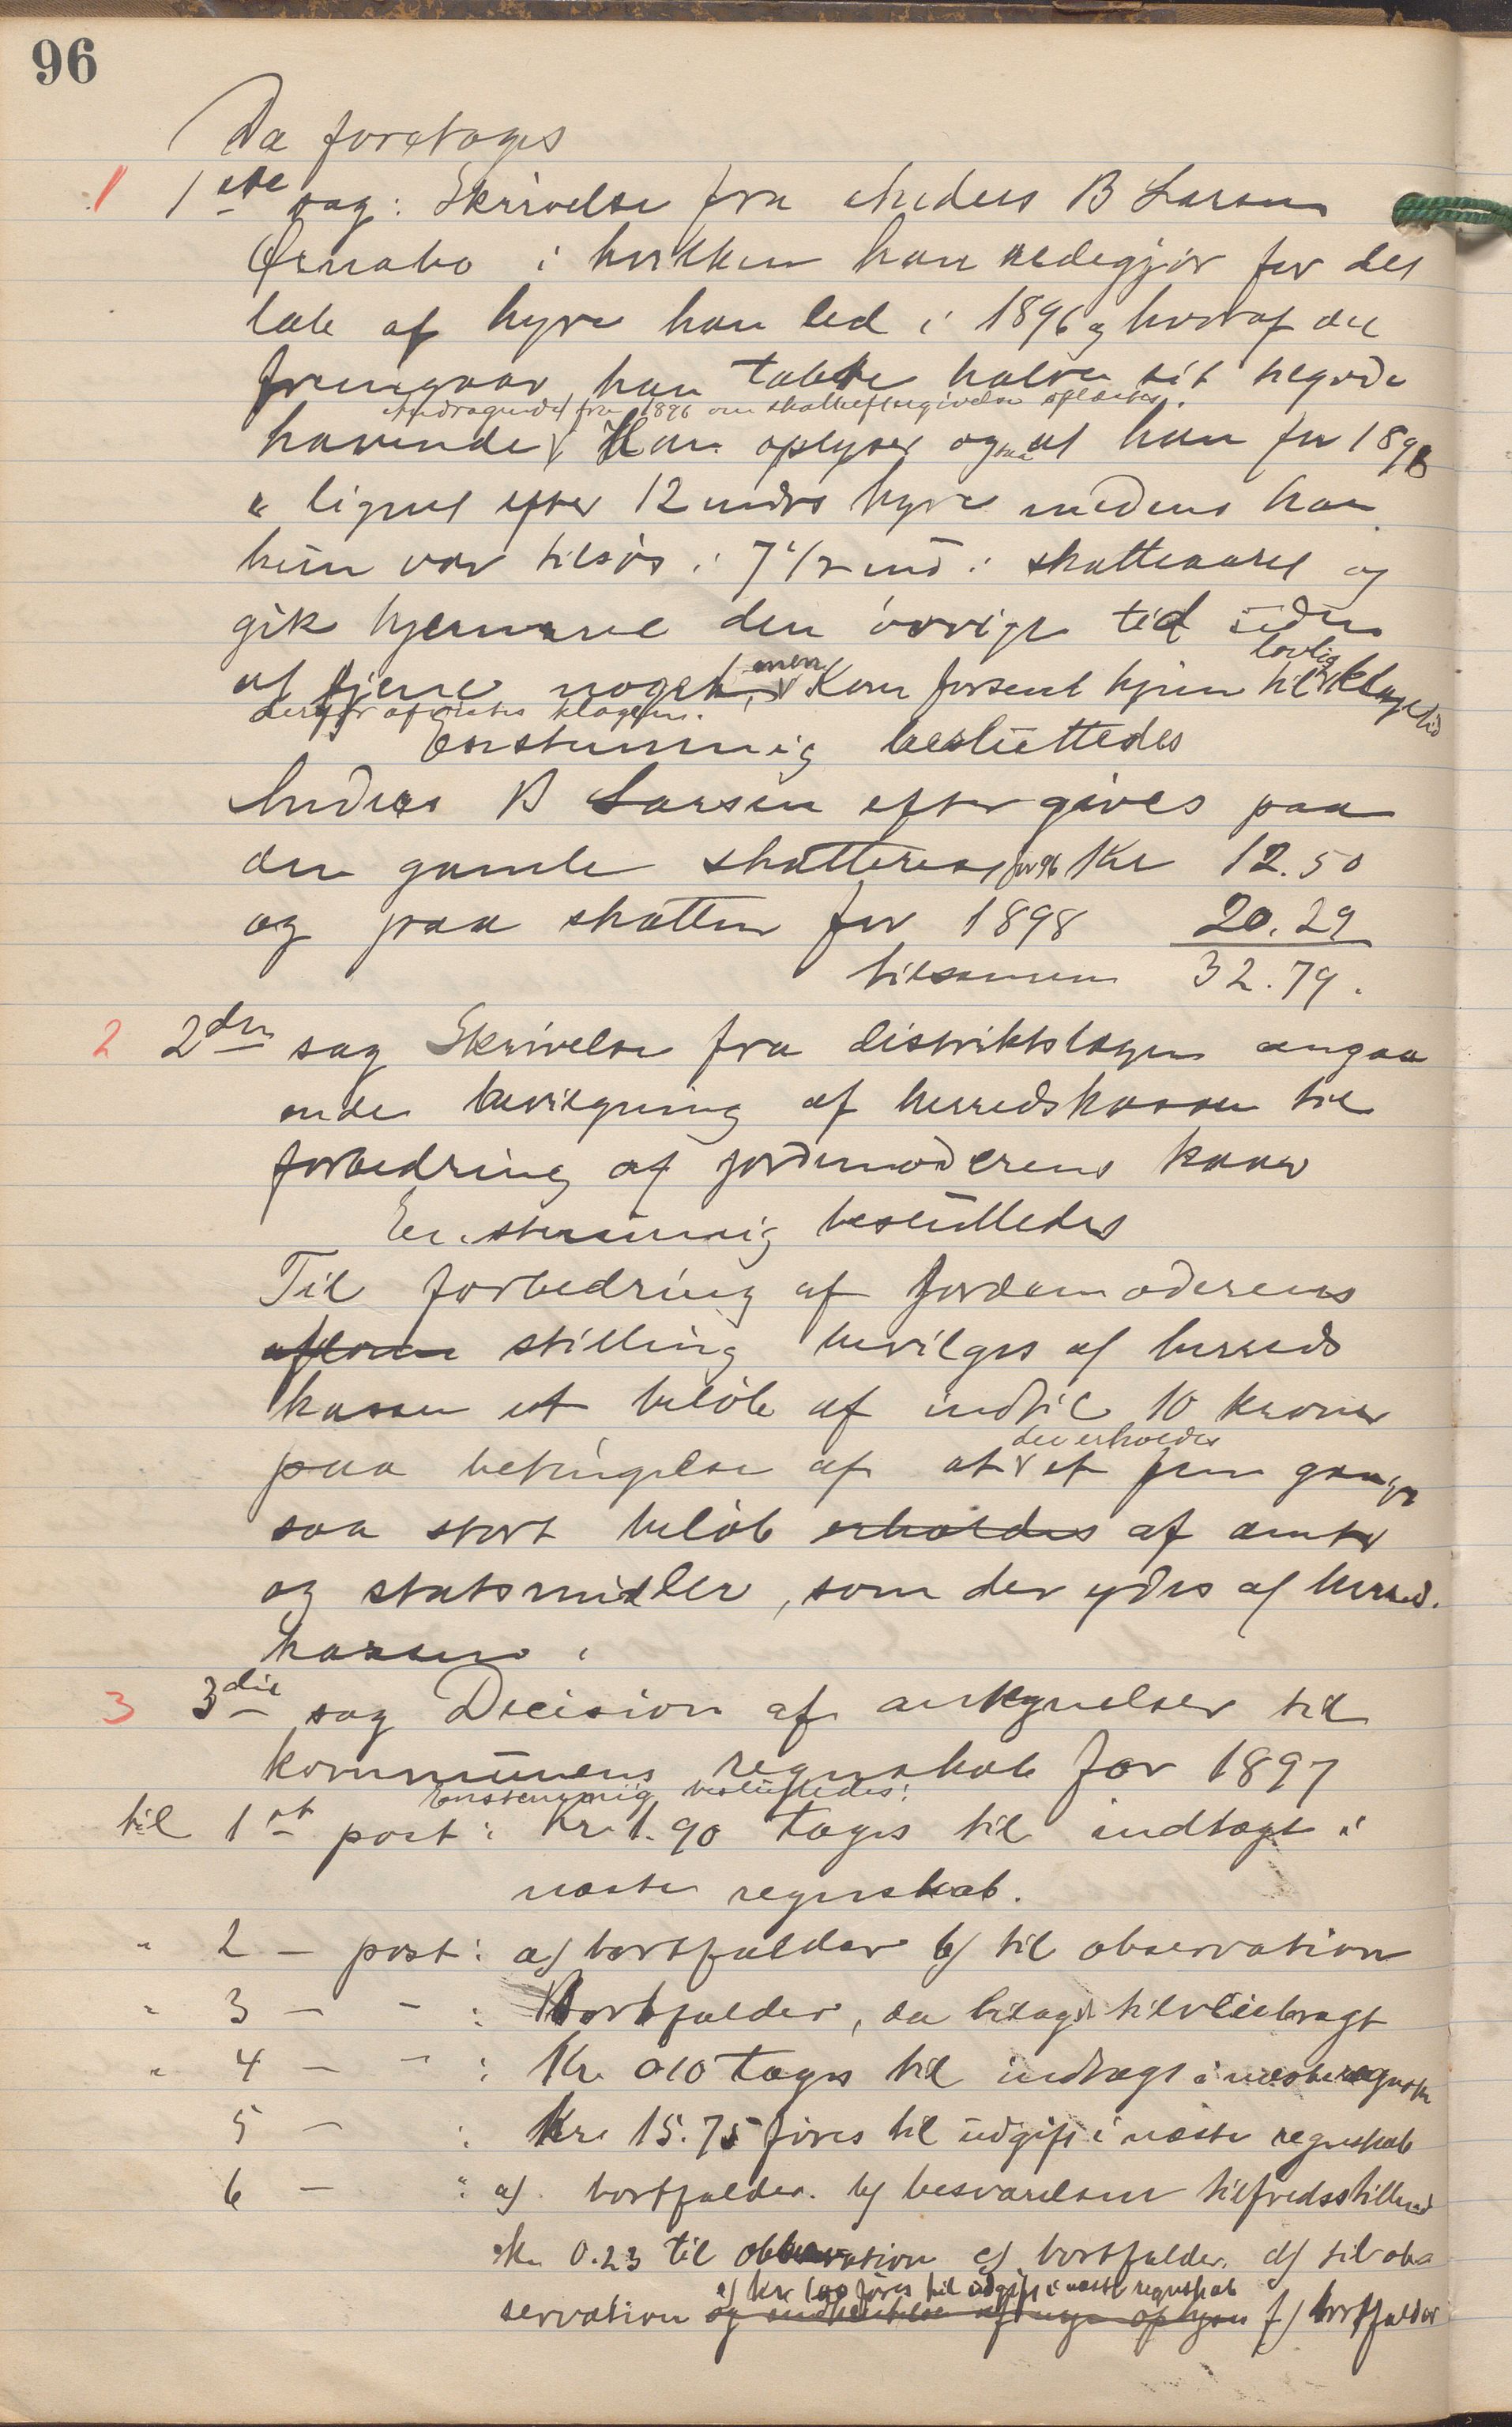 96
Da foretoges
1 1ste sag: Skrivelse fra Anders B Larsen
Ørnabo i hvilken han redegjør for det
tab af hyre han led i 1896 og hvoraf det
fremgaar han tabte halve sit tilgode
Andragendet fra 1896 om skatteeftergivelse oplæstes.
havende. Han oplyser ogsaa at han for 1898
er lignet efter 12 mdrs hyre medens han
kun var tilsøs i 7 1/2 md i skatteaaret og
gik hjemme den øvrige tid uden
at tjene noget, men kom forsent hjem til lovlig klagetid
derfor afvistes klagen.
Enstemmig besluttedes
Anders B Larsen eftergives paa
den gamle skatterest for 96 Kr 12.50
og paa skatten for 1898 20.29
tilsammen 32.79.
2 2den sag Skrivelse fra distriktslægen angaa
ende bevilgning af herredskassen til
forbedring af jordemoderens kaar
Enstemmig besluttedes
Til forbedring af jordemoderens
stilling bevilges af herreds
kassen et beløb af indtil 10 kroner
paa betingelse af at der erholdes et fem gange
saa stort beløb erholdes af amts
og statsmidler, som der ydes af herreds
kassen.
3 3die sag Decision af antegnelser til
kommunens regnskab for 1897
Enstemmig besluttedes:
til 1st post: Kr. 1.90 tages til indtægt i
næste regnskab.
" 2 - post: a) bortfalder b) til observation
" 3 - - : Bortfalder, da bilaget tilveiebragt
" 4 - - : Kr. 010 tages til indtægt i næste regnsk
5 - : Kr. 15.75 føres til udgift i næste regnskab
6 - : a) bortfalder. b) besvarelsen tilfredsstillende
Kr. 0.23 til observation c) bortfalder. d) til ob
servation e) kr 1.00 føres til udgift i næste regnskab f) bortfalder